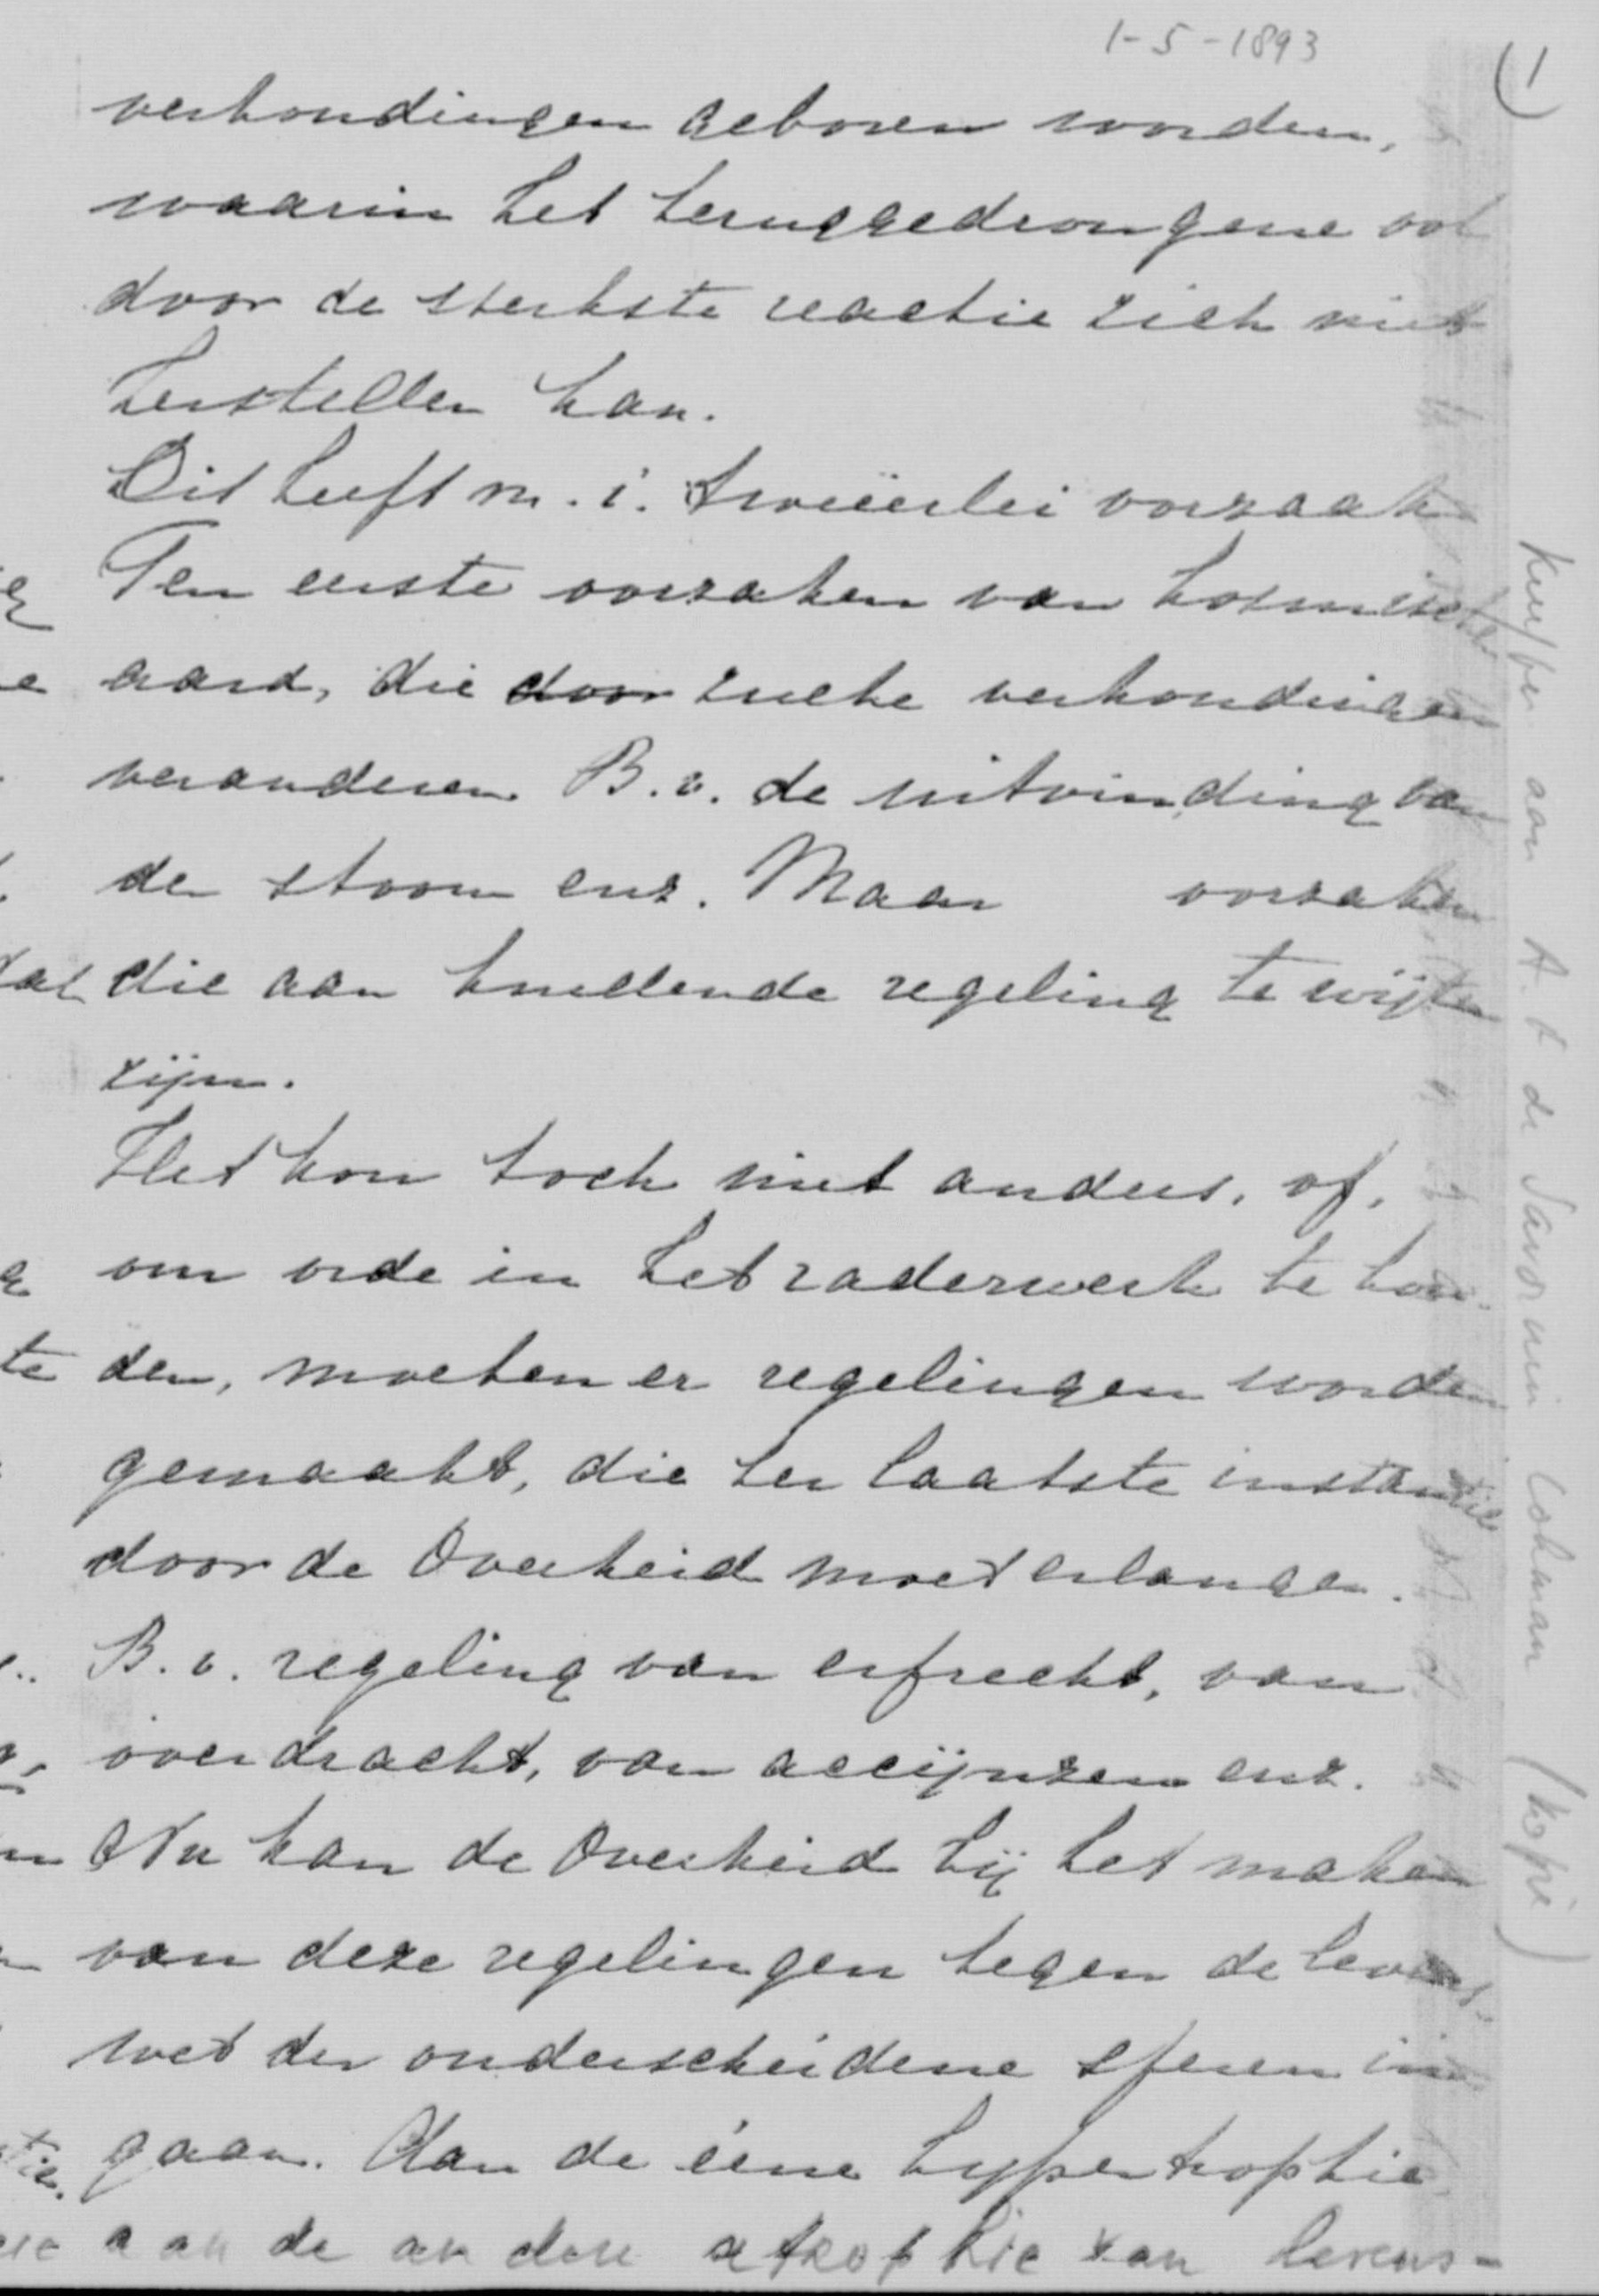 1-5-1893
1)
verhoudingen geboren worden,
waarin het teruggedrongene ook
door de sterkste reactie zich niet
herstellen kan.
Dit heeft m.i. tweeërlei oorzaak
Ten eerste oorzaken van kosmische
aard, die door zulke verhoudingen
veranderen. B.v. de uitvinding van
de stoom enz. Maar oorzaken
die aan knellende regeling te wijten
zijn.
Het kon toch niet anders, of,
om orde in het raderwerk te hou-
den, moeten er regelingen worden
gemaakt, die ter laatste instantie
door de Overheid moet erlangen.
B.v. regeling van erfrecht, van
overdracht, van accijnzen enz.
Nu kan de Overheid bij het maken
van deze regelingen tegen de levens-
wet der onderscheidene sferen in
gaan. Aan de ééne hypertrophie
aan de andere atrophie van levens-
Kuyper aan A. F. de Savornin Lohman (kopie)